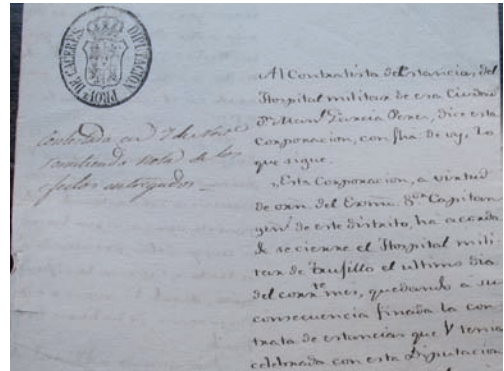 DIPUTACION
PROV.L DE CACERES.
Contestada en 7 de Nov.e
remitiendo nota de los
efectos entregados_
Al Contratista de Estancias del
Hospital militar de esa Ciudad
D.n Man.l Garcia Perez, dice esta
Corporacion, con fha. de oy, lo
que sigue.
"Esta Corporacion, a virtud
de orn. del Exmo. S.or Capitan
gen.l de este distrito, ha acorda
do se cierre el Hospital mili
tar de Trujillo el ultimo dia
del corr.te mes, quedando a su
consecuencia finada la con
trata de estancias que V tenia
celebrada con esta Diputacion